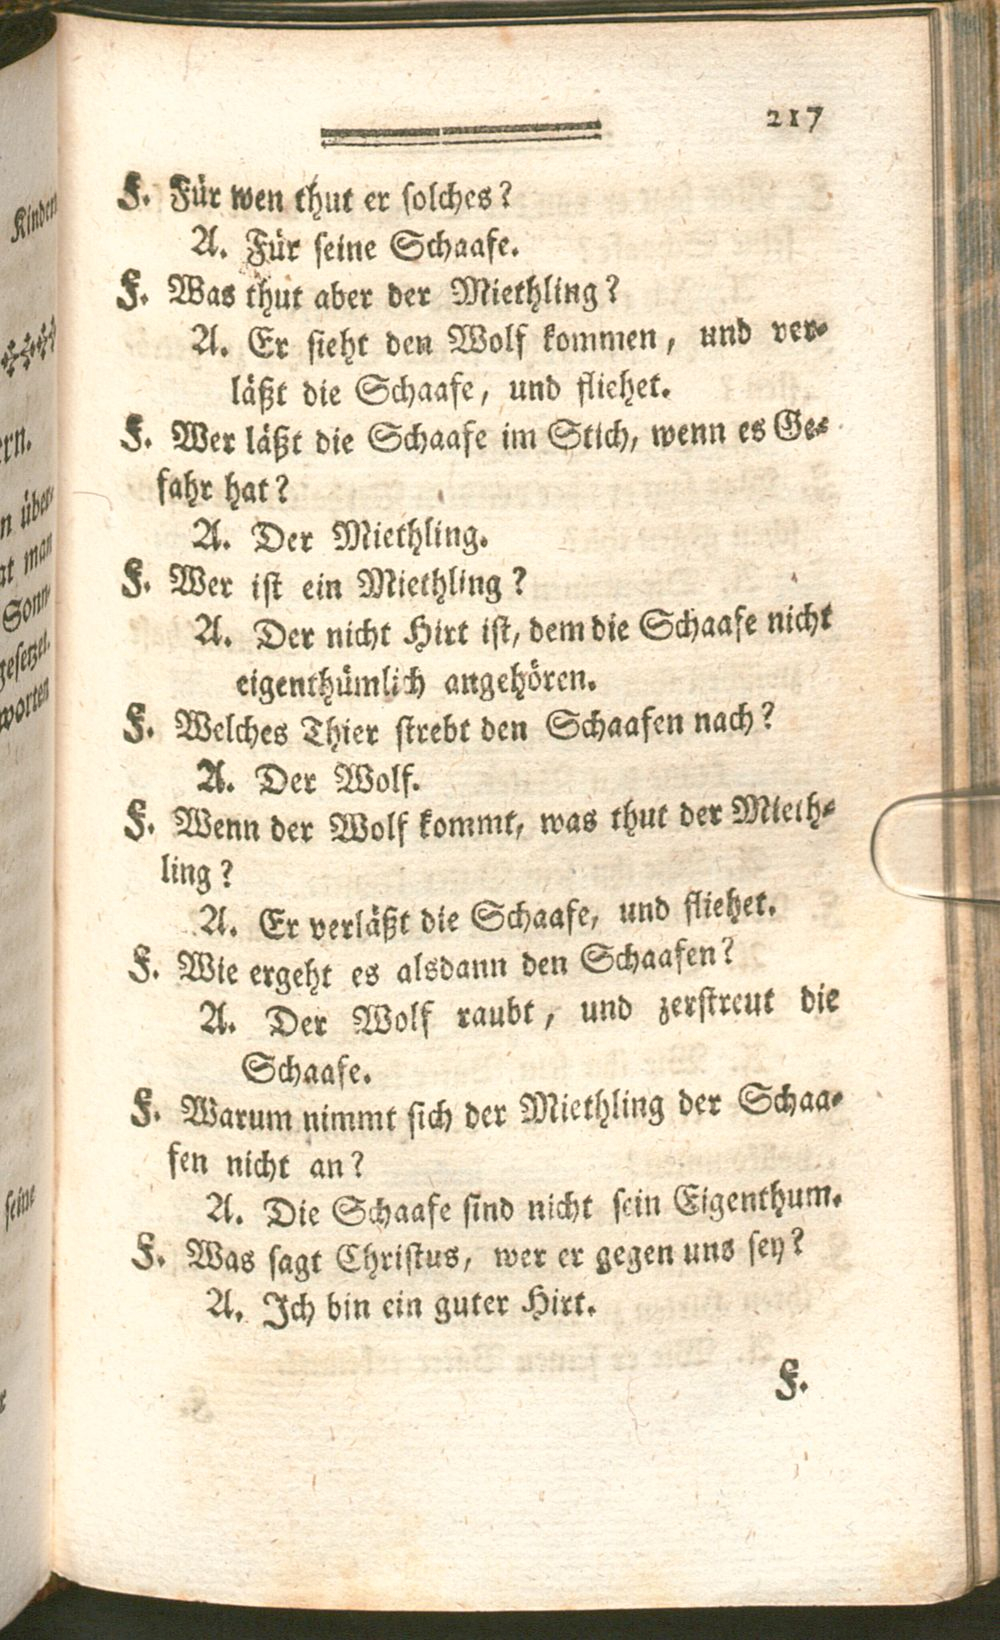 217
F. Für wen thut er solches?
A. Für seine Schaafe.
F. Was thut aber der Miethling?
A. Er sieht den Wolf kommen, und ver-
läßt die Schaafe, und fliehet.
F. Wer läßt die Schaafe im Stich, wenn es Ge-
fahr hat?
A. Der Miethling.
F. Wer ist ein Miethling?
A. Der nicht Hirt ist, dem die Schaafe nicht
eigenthümlich angehören.
F. Welches Thier strebt den Schaafen nach?
A. Der Wolf.
F. Wenn der Wolf kommt, was thut der Mieth-
ling?
A. Er verläßt die Schaafe, und fliehet.
F. Wie ergeht es alsdann den Schaafen?
A. Der Wolf raubt, und zerstreut die
Schaafe.
F. Warum nimmt sich der Miethling der Schaa-
fen nicht an?
A. Die Schaafe sind nicht sein Eigenthum.
F. Was sagt Christus, wer er gegen uns sey?
A. Ich bin ein guter Hirt.
F.
Kindern
über-
man
Sonn-
gesetzet.
worten
seine